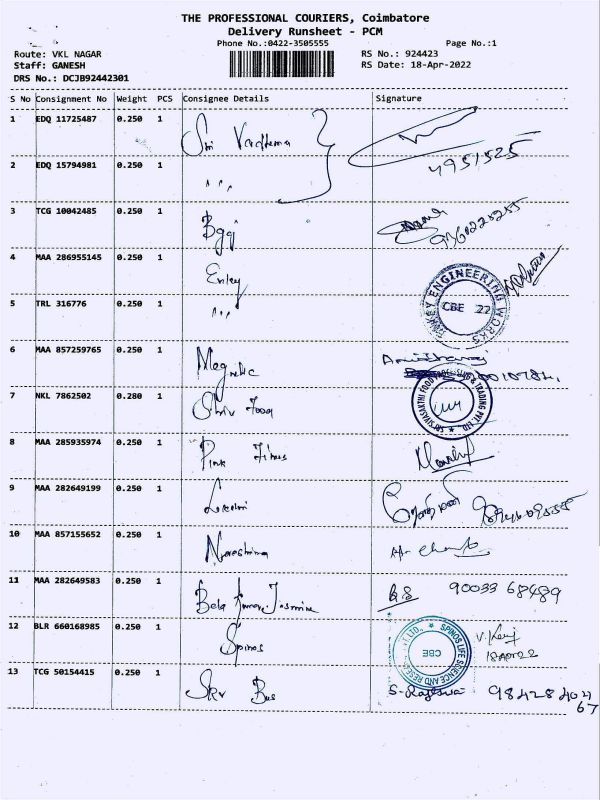 THE PROFESSIONAL COURIERS, Coimbatore
Delivery Runsheet - PCM
Phone No.:0422-3505555
Page No.:1
Route: VKL NAGAR
RS No.: 924423
Staff: GANESH
RS Date: 18-Apr-2022
DRS No.: DCJB92442301
S No Consignment No Weight PCS Consignee Details Signature
1 EDQ 11725487 0.250 1 Sri Vardhema
2 EDQ 15794981 0.250 1 ,,, 4951525
3 TCG 10042485 0.250 1 Bggi
4 MAA 286955145 0.250 1 Enkey
ENGINEERING WORKS
CBE 22
5 TRL 316776 0.250 1 ,,,
6 MAA 857259765 0.250 1 Magnetic
7 NKL 7862502 0.280 1 Shiv Food
SRI SIVASAKTHI FOOD & TRADING PVT. LTD.
8 MAA 285935974 0.250 1 Pink
9 MAA 282649199 0.250 1 Laxmi
10 MAA 857155652 0.250 1 Nareshima
11 MAA 282649583 0.250 1 Bala Kumar Jasmine 90033 68439
12 BLR 660168985 0.250 1 Spinos
SPINOS LIFE SCIENCE AND LTD.
CBE
13 TCG 50154415 0.250 1 SKV Bus 98428404
67